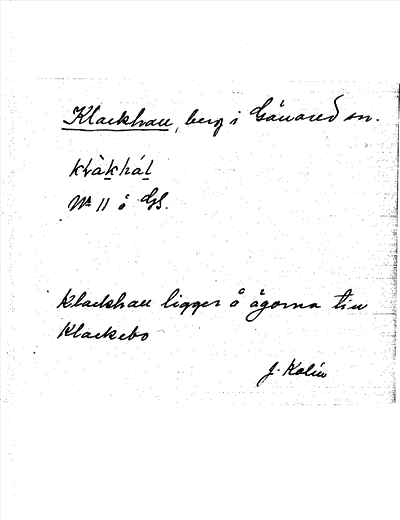 Klackhall, berg i Gånared sn.
klàkhál
Nr 11 å GS.
Klackhall ligger å ägorna till
Klackebo
J. Kalén